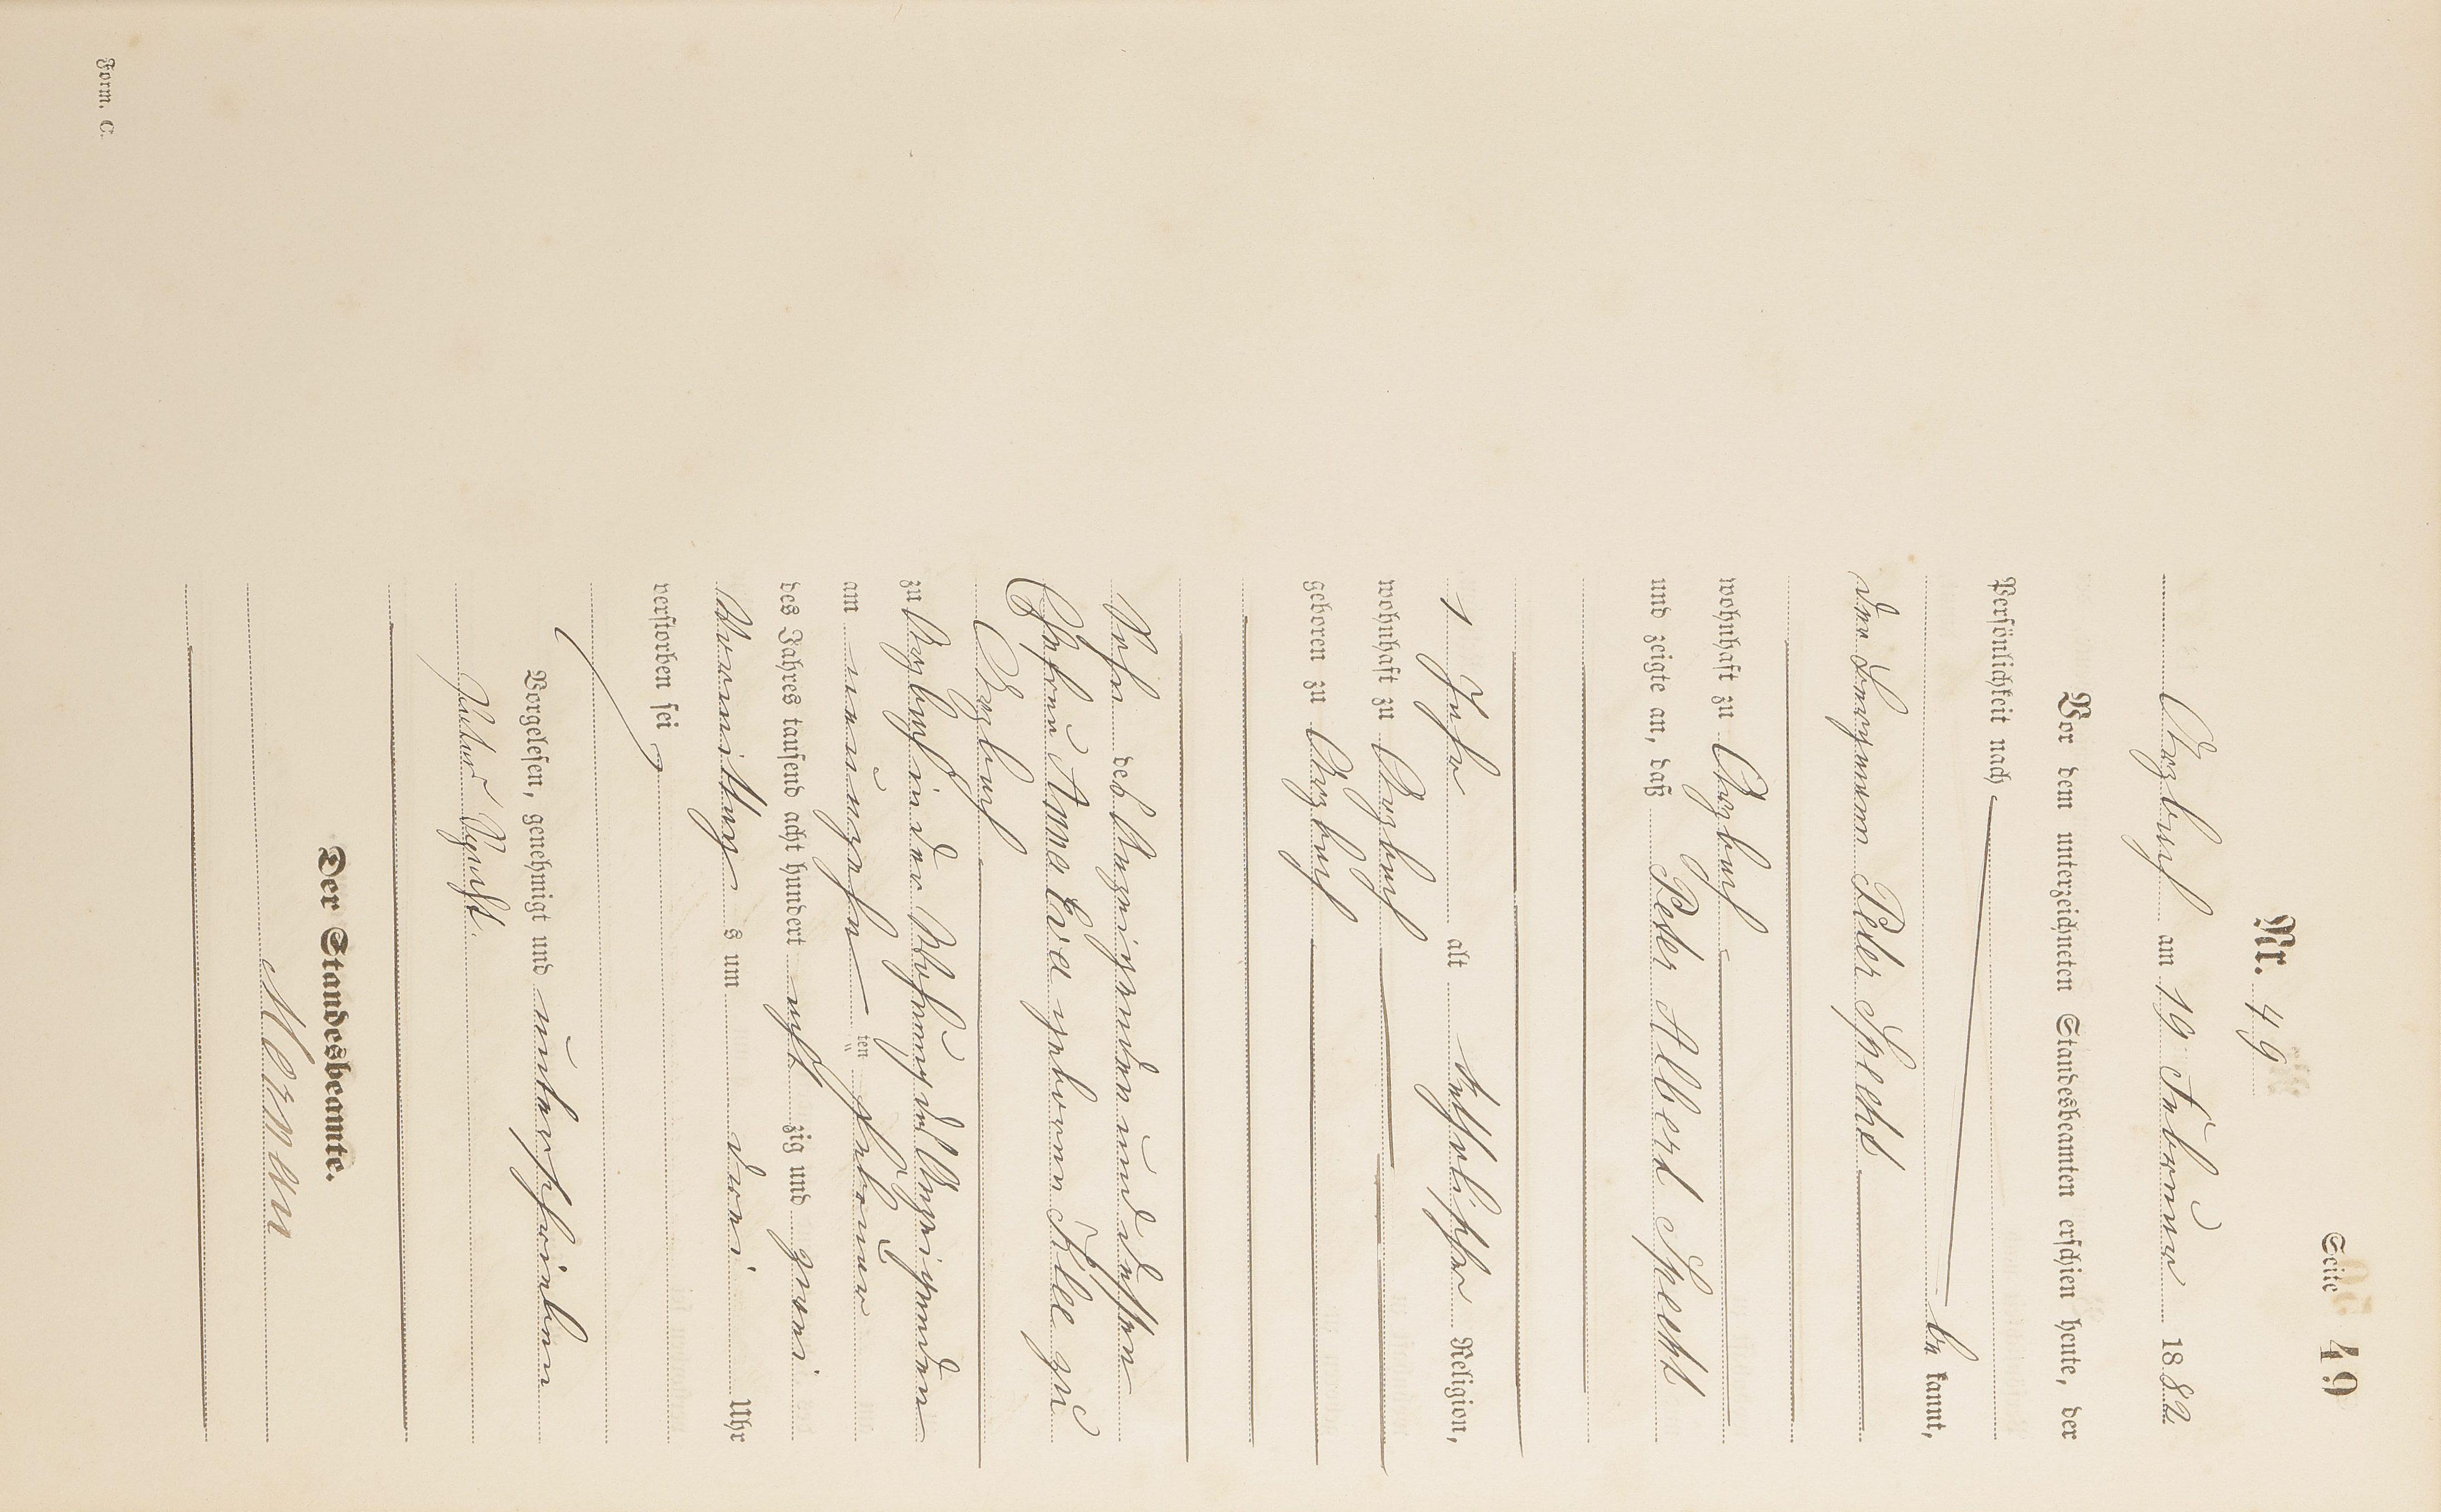 Seite 49
Nr. 49
am 19 Februar 1882
Vor dem unterzeichneten Standesbeamten erschien heute, der
Persönlichkeit nach
be kannt,
der Bergmann Peter Specht
wohnhaft zu
und zeigte an, daß Peter Albert Specht
1 Jahr alt katholischer Religion,
wohnhaft zu
geboren zu
Sohn des Anzeigenden und dessen
Ehefrau Anna Eva geborene Klee zu
zu in der Wohnung des Anzeigenden
am neunzehn ten Februar
des Jahres tausend acht hundert acht zig und zwei
Vormittag s um drei Uhr
verstorben sei
Vorgelesen, genehmigt und unterschrieben
Peter Specht.
Der Standesbeamte.
Form. C.